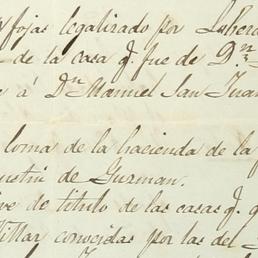 fojas legalizado por Lubero
de la casa q. fue de Dn
á Dn Manuel San Juan
loma de la hacienda de la
de Guzman.
de titulo de las casas q.
Villar conocidas por las del